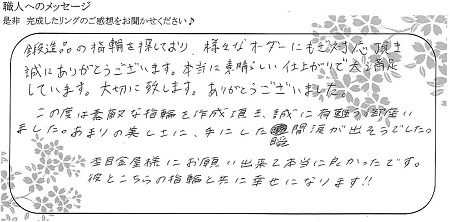 職人へのメッセージ
是非 完成したリングのご感想をお聞かせください♪
鍛造品の指輪を探しており、様々なオーダーにもご対応頂き
誠にありがとうございます。本当に素晴しい仕上がりで大満足
しています。大切に致します。ありがとうございました。
この度は素敵な指輪を作成頂き、誠に有難う御座い
ました。あまりの美しさに、手にした瞬間涙が出そうでした。
杢目金屋様にお願い出来て本当に良かったです。
彼とこちらの指輪と共に幸せになります!!